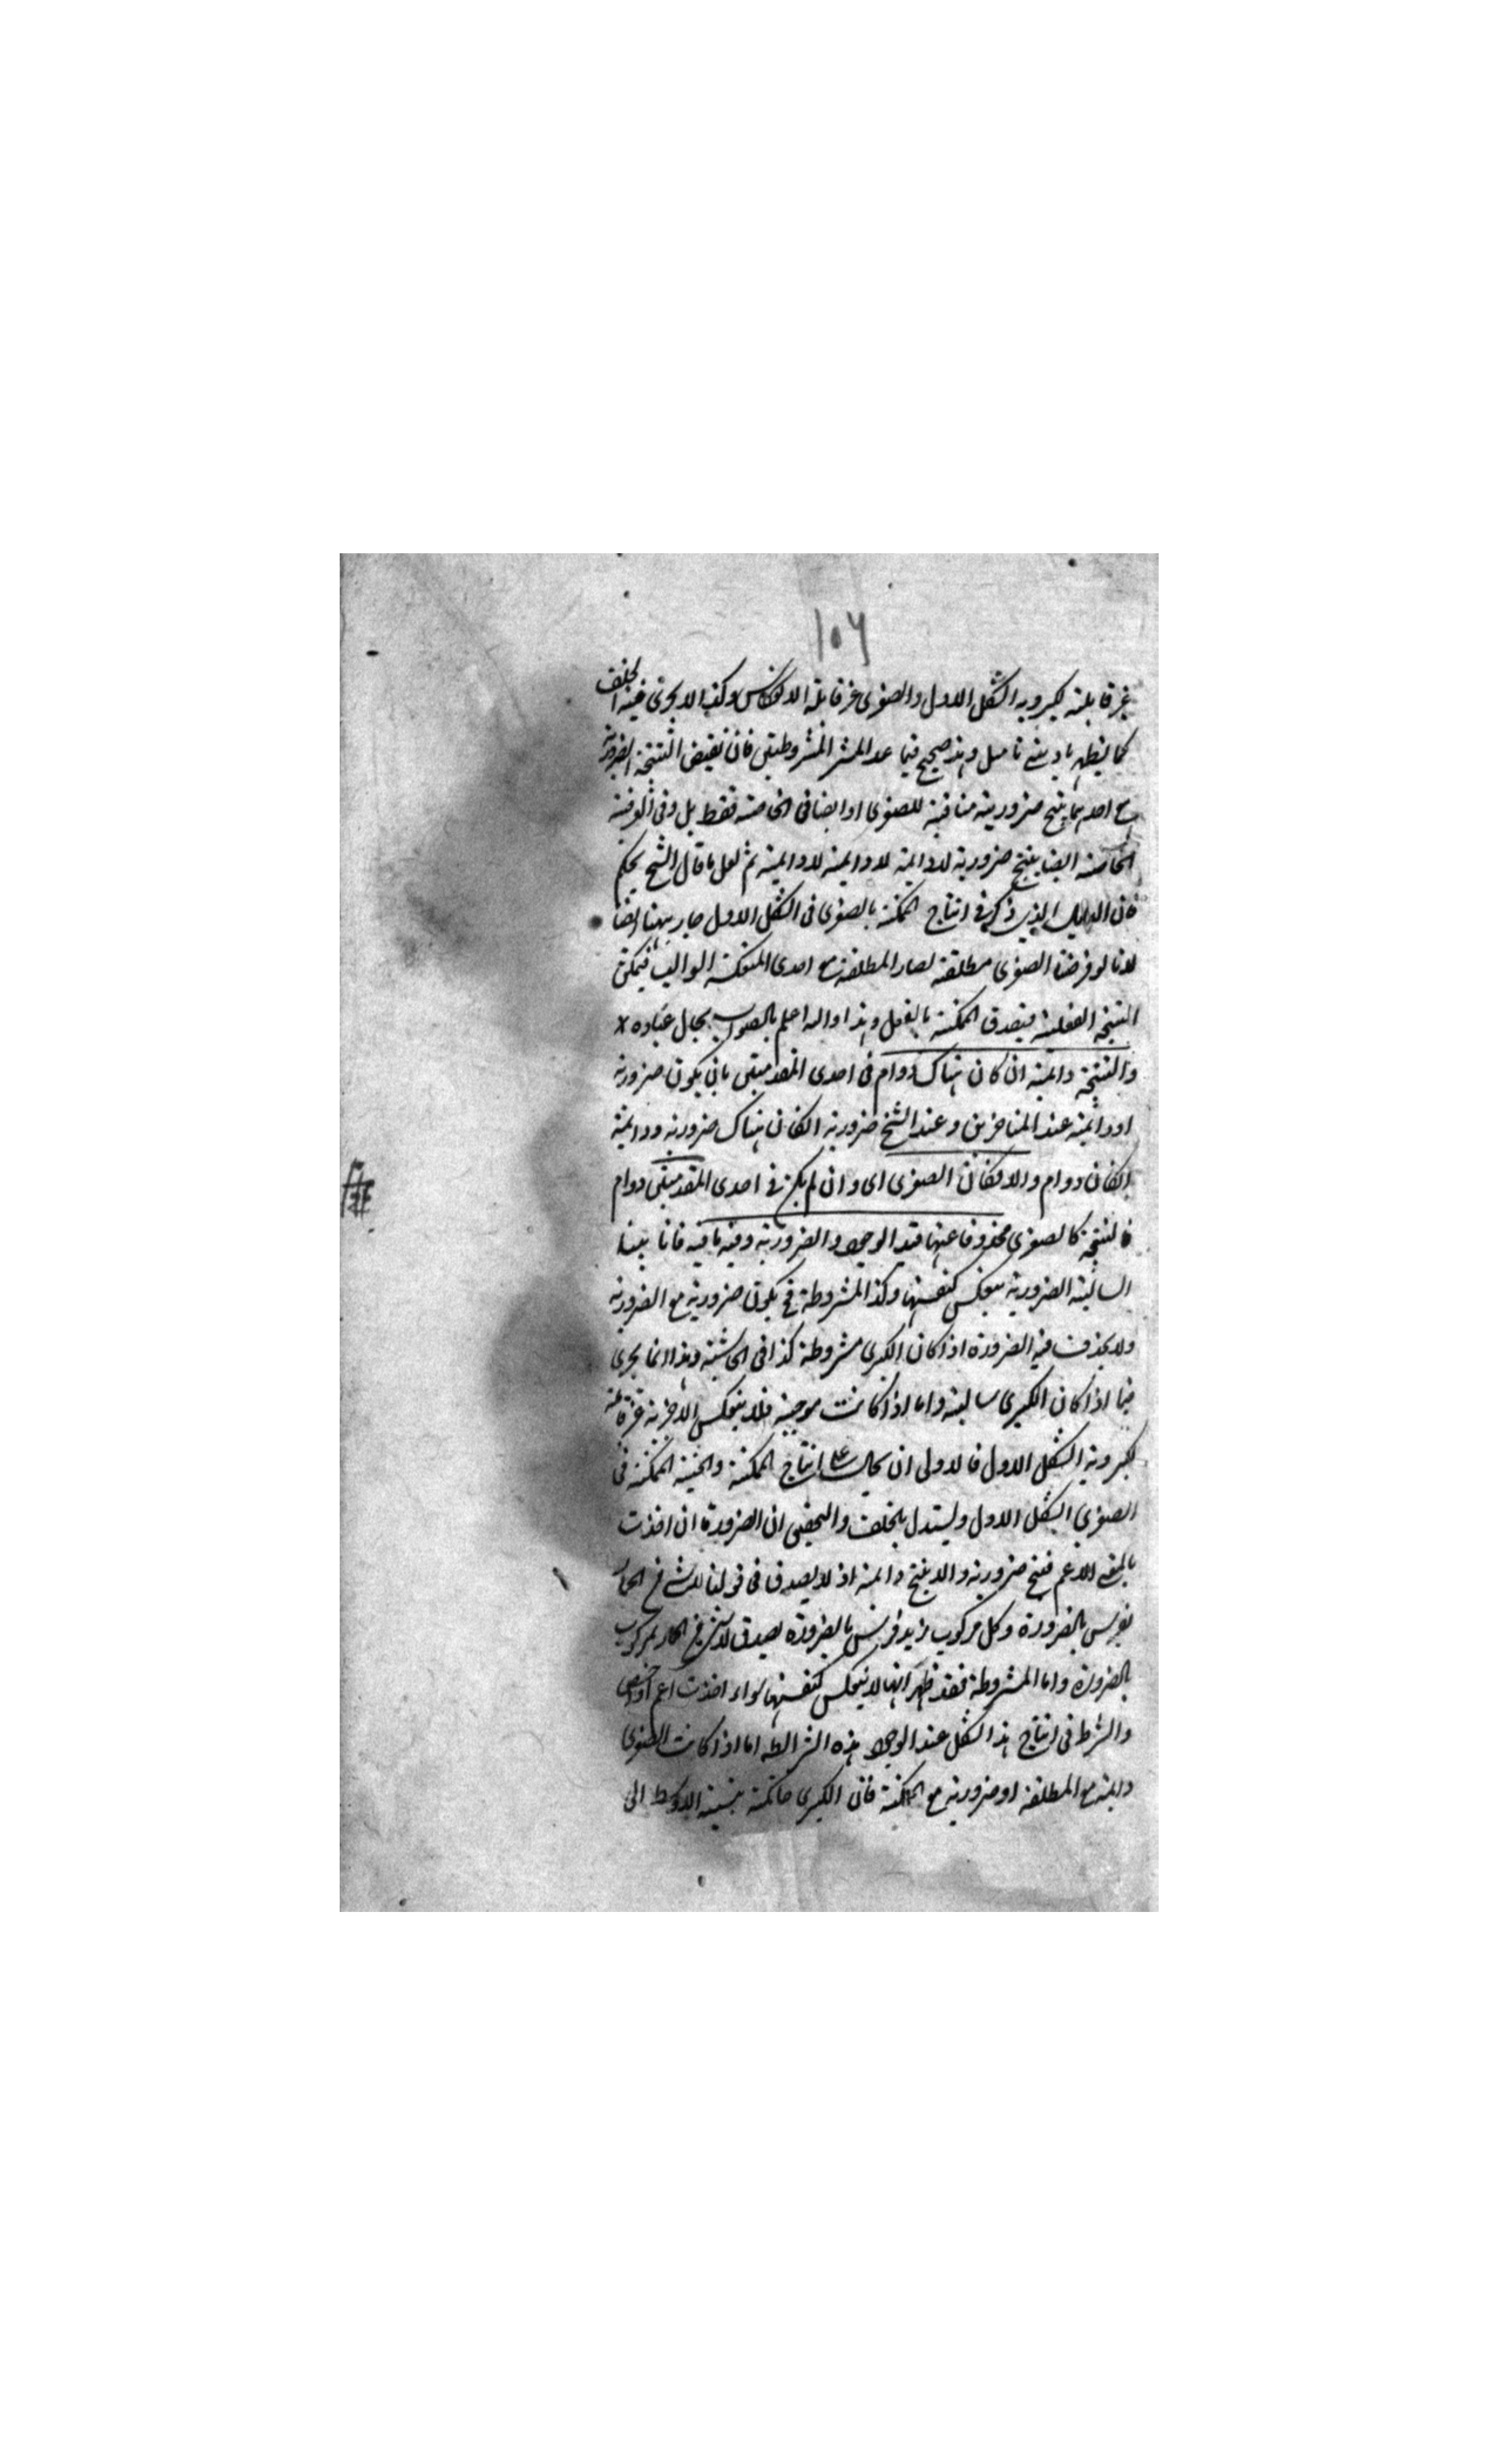 ١٠٦
غير قابلة لكبروية الشكل الاول والصغرى غير قابلة الانعكاس وكذا لا يجرى فيه الخلف
كما يظهر بادنى تامل وهذا صحيح فيما عدا المشروطتين فان نقيض النتيجة الضرورية
مع احديهما ينتج ضرورية منافية للصغرى او ايضا فى الخاصة فقط بل وفى الوقتية
الخاصة ايضا ينتج ضرورية لادائمة لادائمة ثم لعل ما قال الشيخ يحكم
فان الدليل الذى ذكر فى انتاج الممكنة بالصغرى فى الشكل الاول جار ههنا ايضا
لانا لو فرضنا الصغرى مطلقة لصار المطلقة مع احدى المنعكسة السوالب فيمكن
النتيجة الفعلية فيصدق الممكنة بالفعل وهذا والله اعلم بالصواب بحال عباده
والنتيجة دائمة ان كان هناك دوام فى احدى المقدمتين بان يكون ضرورية
او دائمة عند المتاخرين وعند الشيخ ضرورية الكان هناك ضرورية ودائمة
الكان دوام والا فكان الصغرى اى وان لم يكن فى احدى المقدمتين دوام
فالنتيجة كالصغرى محذوفا عنها قيد الوجود والضرورية وفيه ما فيه فانا بينا
السالبة الضرورية ينعكس كنفسها وكذا المشروطة فح يكون ضرورية مع الضرورية
ولا يحذف فيه الضرورة اذا كان الكبرى مشروطة كذا فى الحاشية وهذا انما يجرى
فيما اذا كان الكبرى سالبة واما اذا كانت موجبة فلا ينعكس الا جزئية غير قابلة
لكبروية الشكل الاول فالاولى ان يحال على انتاج الممكنة والحينية الممكنة فى
الصغرى الشكل الاول ويستدل بالخلف والتحقيق ان الضرورة ان اخذت
بالمعنى الاعم فينتج ضرورية والا ينتج دائمة اذ لا يصدق فى قولنا لا شئ من الحمار
بفرس بالضرورة وكل مركوب زيد فرس بالضرورة يصدق لا شئ من الحمار بمركوب
بالضرورة واما المشروطة فقد ظهر انها لا ينعكس كنفسها سواء اخذت اعم او اخص
والشرط فى انتاج هذا الشكل عند الوجود هذه الشرائط اما اذا كانت الصغرى
دائمة مع المطلقة او ضرورية مع الممكنة فان الكبرى حاكمة بنسبة الاوسط الى